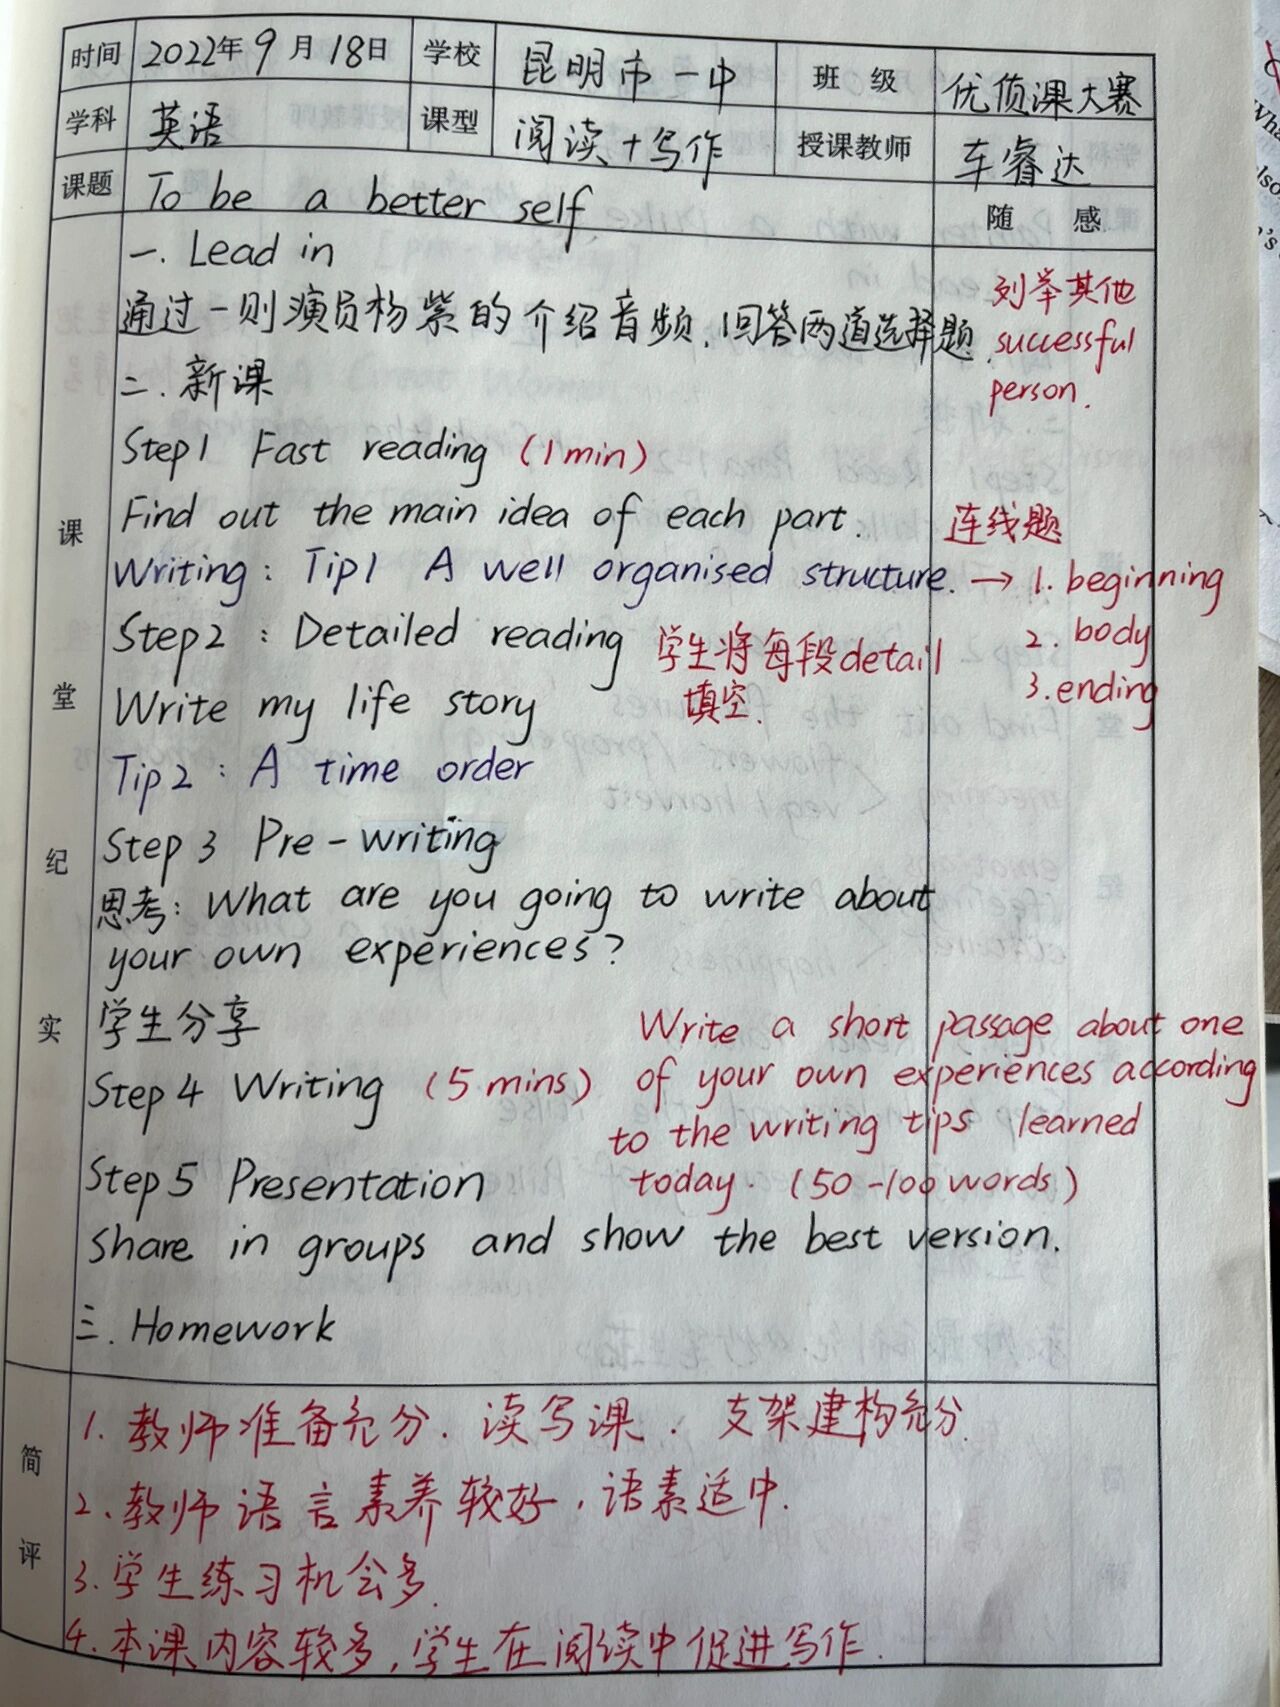 时间 2022年9月18日 学校 昆明市一中 班级 优侦课大赛
学科 英语 课型 阅读+写作 授课教师 车睿达
课题 To be a better self. 随感
课堂纪实
一. Lead in
通过一则演员杨紫的介绍音频,回答两道选择题.
列举其他
successful
person.
二. 新课
Step1 Fast reading (1min)
Find out the main idea of each part. 连线题
Writing: Tip1 A well organised structure. → 1. beginning
2. body
3. ending
Step2: Detailed reading 学生将每段detail
填空.
Write my life story
Tip2: A time order
Step 3 Pre-writing
思考: What are you going to write about
your own experiences?
学生分享
Step4 Writing (5 mins) Write a short passage about one
of your own experiences according
to the writing tips learned
today. (50-100 words)
Step5 Presentation
Share in groups and show the best version.
三. Homework
简评
1. 教师准备充分. 读写课. 支架建构充分.
2. 教师语言素养较好, 语素适中.
3. 学生练习机会多.
4. 本课内容较多, 学生在阅读中促进写作.